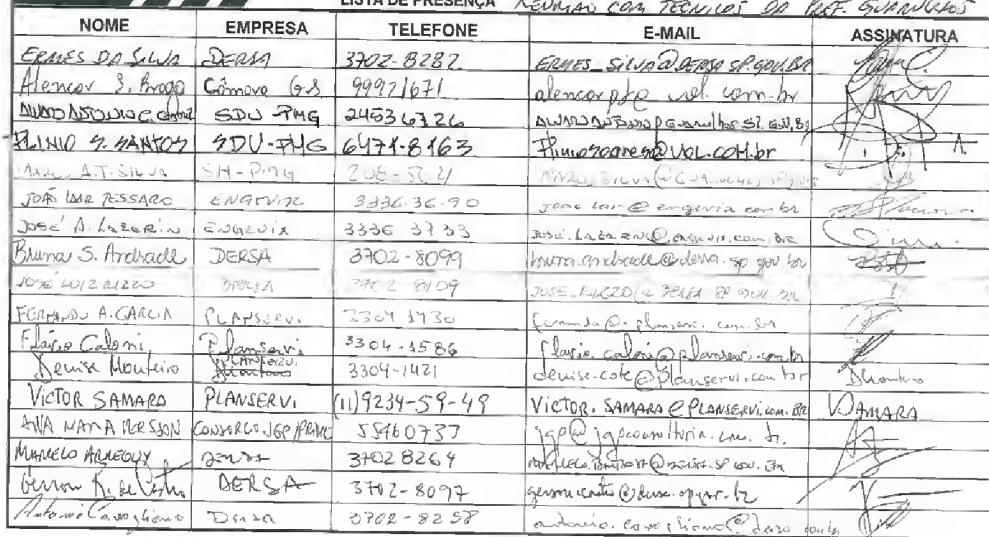 LISTA DE PRESENÇA REUNIÃO COM TÉCNICOS DA PREF. GUARULHOS
NOME EMPRESA TELEFONE E-MAIL ASSINATURA
ERMES DA SILVA DERSA 3702-8282 ERMES_SILVA@DERSA.SP.GOV.BR
Alencar S. Braga Câmara GS 99921671 alencarpt@uol.com.br
SDU-PMG 24536726
PLINIO S. SANTOS SDU-PMG 6471-8163 Pliniosoares@UOL.COM.br
A.T. SILVA SH-PMG
JOÃO LAIR TESSARO ENGEVIX 3336-36-90 joao.lair@engevix.com.br
JOSÉ A. LAZARIN ENGEVIX 3336 3733 JOSE.LAZARIN@ENGEVIX.COM.BR
Bruna S. Andrade DERSA 3702-8099 bruna.andrade@dersa.sp.gov.br
JOSÉ LUIZ RIZZO DERSA 3702 8109 JOSE.RIZZO@DERSA.SP.GOV.BR
FERNANDO A. GARCIA PLANSERVI 3304 1430 fernando@planservi.com.br
Flavio Caloni Planservi 3304-1586 flavio.caloni@planservi.com.br
Denise Monteiro PLANSERVI 3304-1421 denise-cote@planservi.com.br DMonteiro
VICTOR SAMARA PLANSERVI (11)9234-59-49 VICTOR.SAMARA@PLANSERVI.COM.BR VSAMARA
ANA MARIA IVERSSON CONSORCIO JGP/PRIME 55460733 jgp@jgpconsultoria.com.br
MARCELO ARREGUY DERSA 3702 8264
Gerson R. de Castro DERSA 3702-8097
Antonio Cavagliano Dersa 3702-8258 antonio.cavagliano@dersa